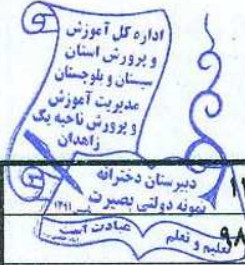 اداره کل آموزش
و پرورش استان
سیستان و بلوچستان
مدیریت آموزش
و پرورش ناحیه یک
زاهدان
دبیرستان دخترانه
نمونه دولتی بصیرت
تعلیم و تعلم عبادت است